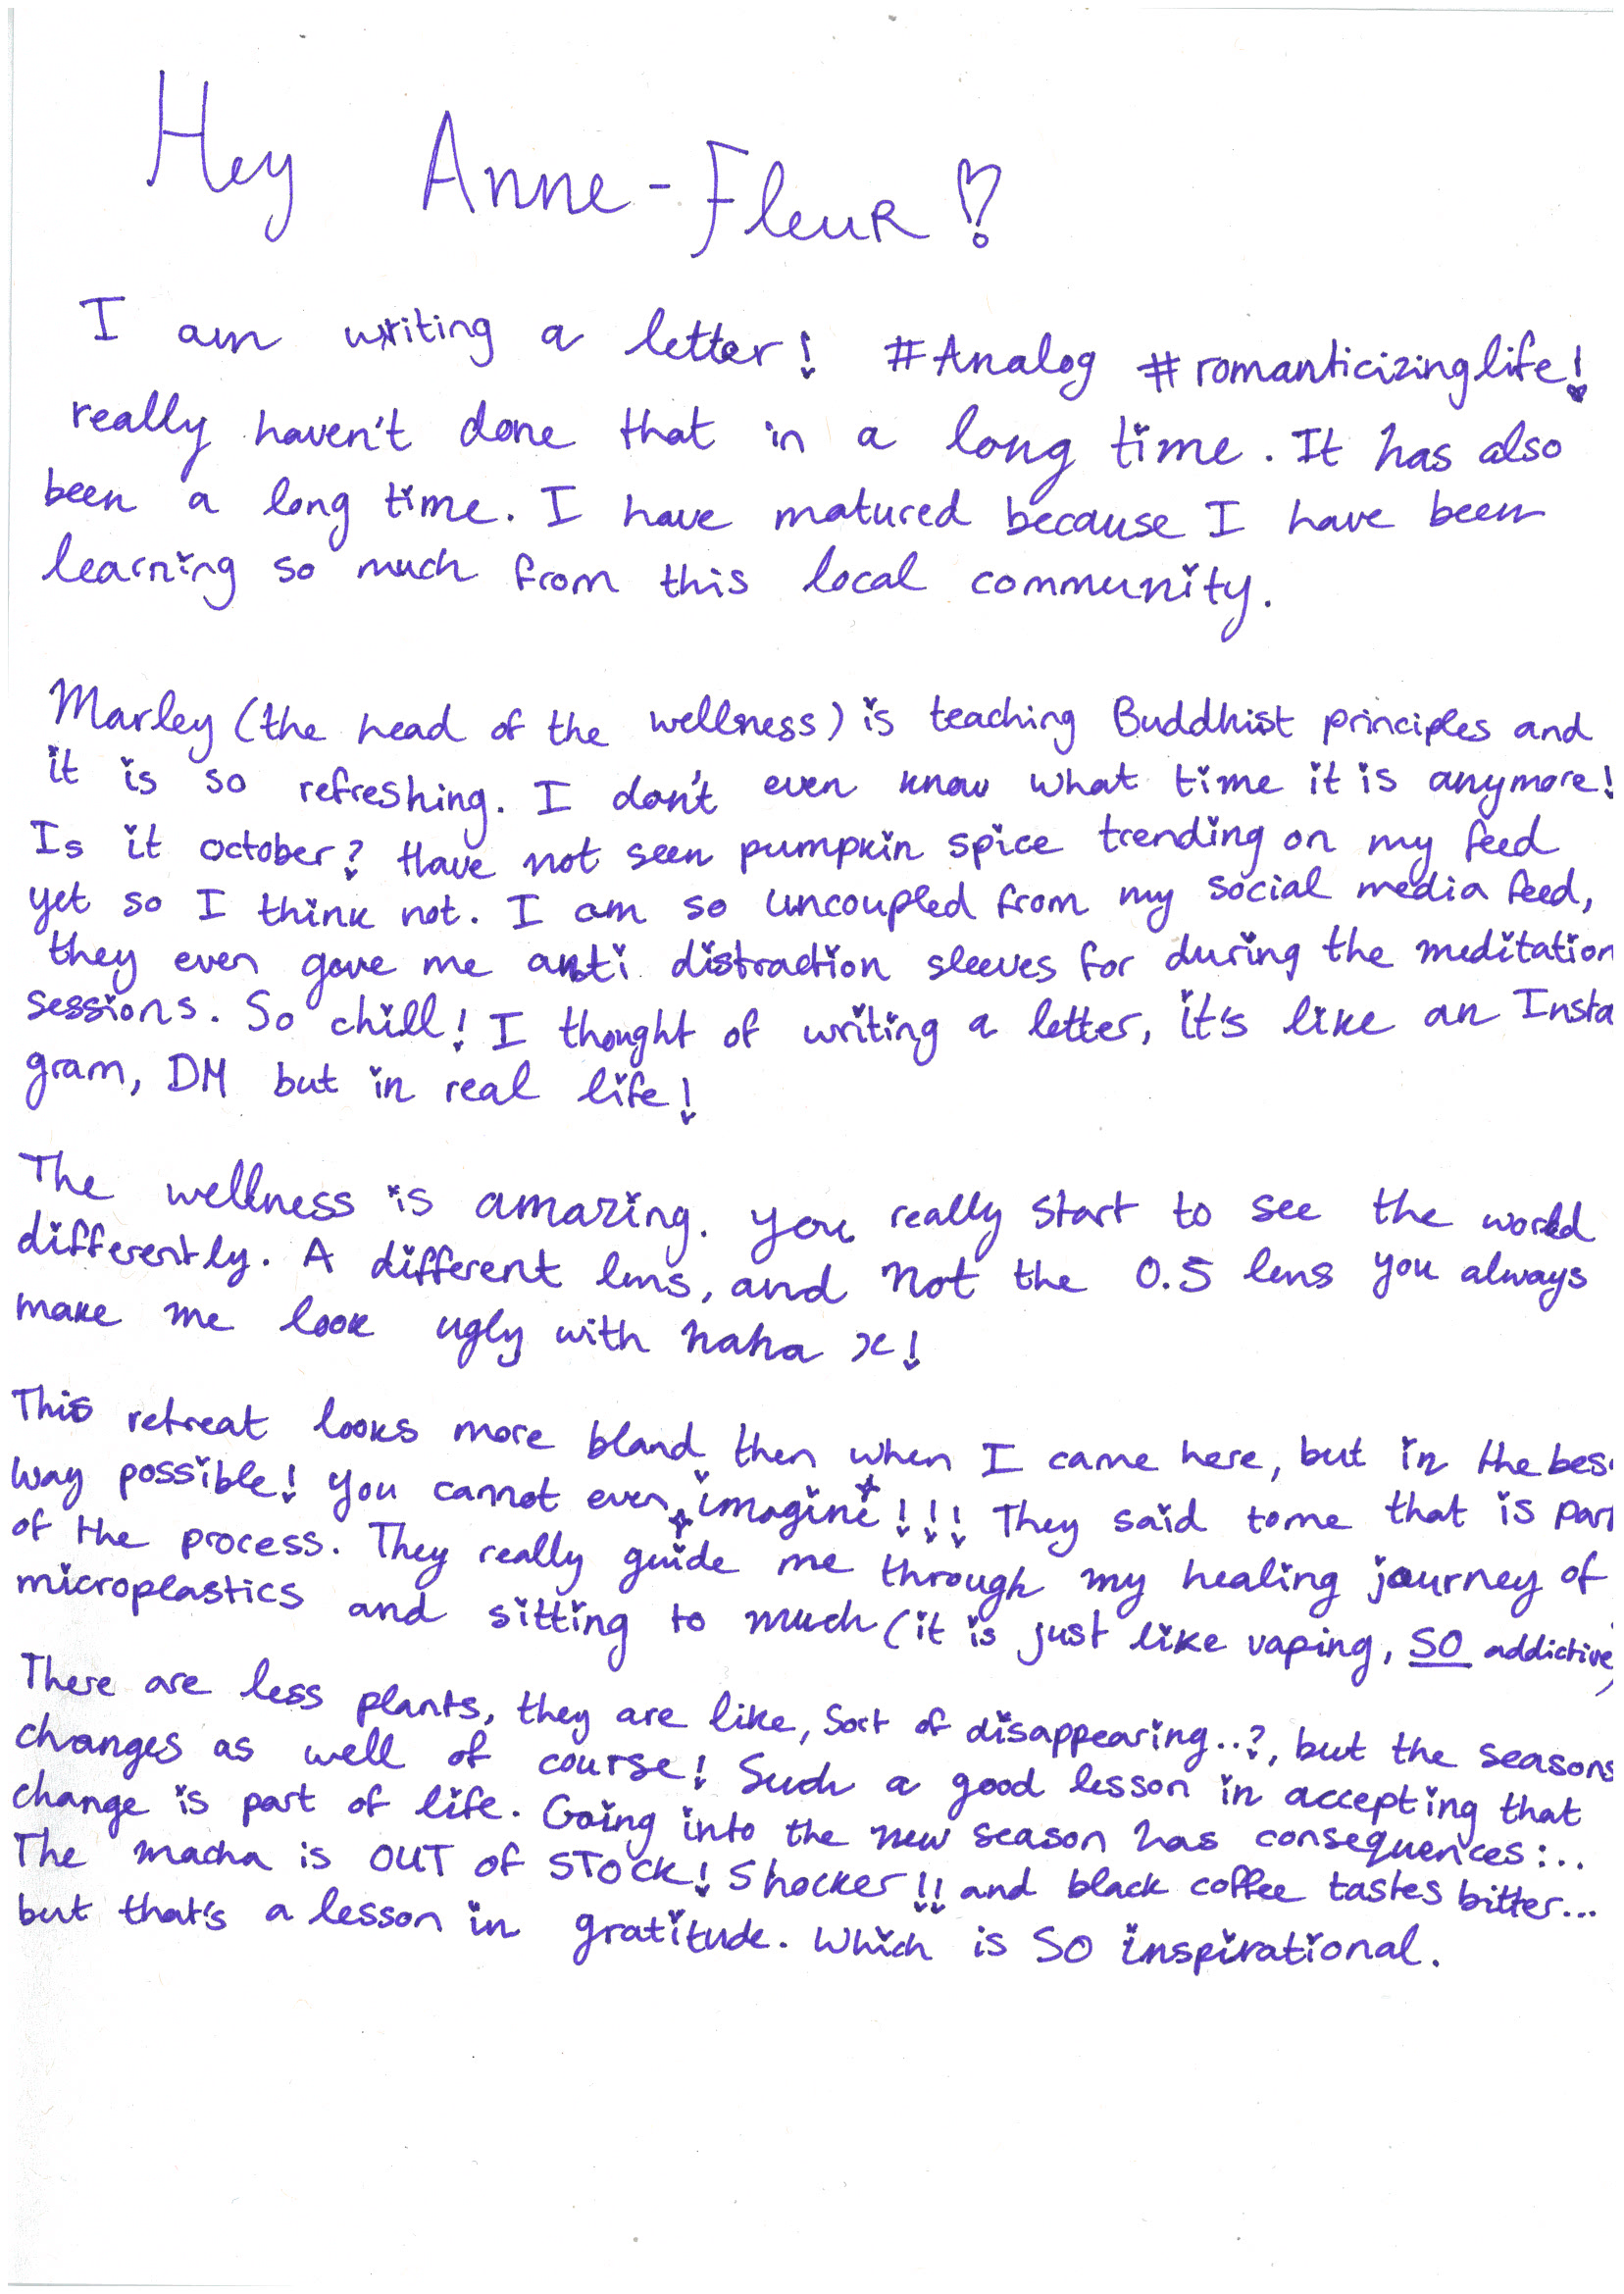 Hey Anne-Fleur!
I am writing a letter! #Analog #romanticizinglife!
really haven't done that in a long time. It has also
been a long time. I have matured because I have been
learning so much from this local community.
Marley (the head of the wellness) is teaching Buddhist principles and
it is so refreshing. I don't even know what time it is anymore!
Is it october? Have not seen pumpkin spice trending on my feed
yet so I think not. I am so uncoupled from my social media feed,
they even gave me anti distraction sleeves for during the meditation
sessions. So chill! I thought of writing a letter, it's like an Insta
gram, DM but in real life!
The wellness is amazing. You really start to see the world
differently. A different lens, and not the 0.5 lens you always
make me look ugly with haha x!
This retreat looks more bland then when I came here, but in the bes
way possible! You cannot even imagine!!! They said to me that is part
of the process. They really guide me through my healing journey of
microplastics and sitting to much (it is just like vaping, SO addictive)
There are less plants, they are like, sort of disappearing..?, but the seasons
changes as well of course! Such a good lesson in accepting that
change is part of life. Going into the new season has consequences:..
The macha is OUT OF STOCK! Shocker!! and black coffee tastes bitter...
but that's a lesson in gratitude. Which is SO inspirational.